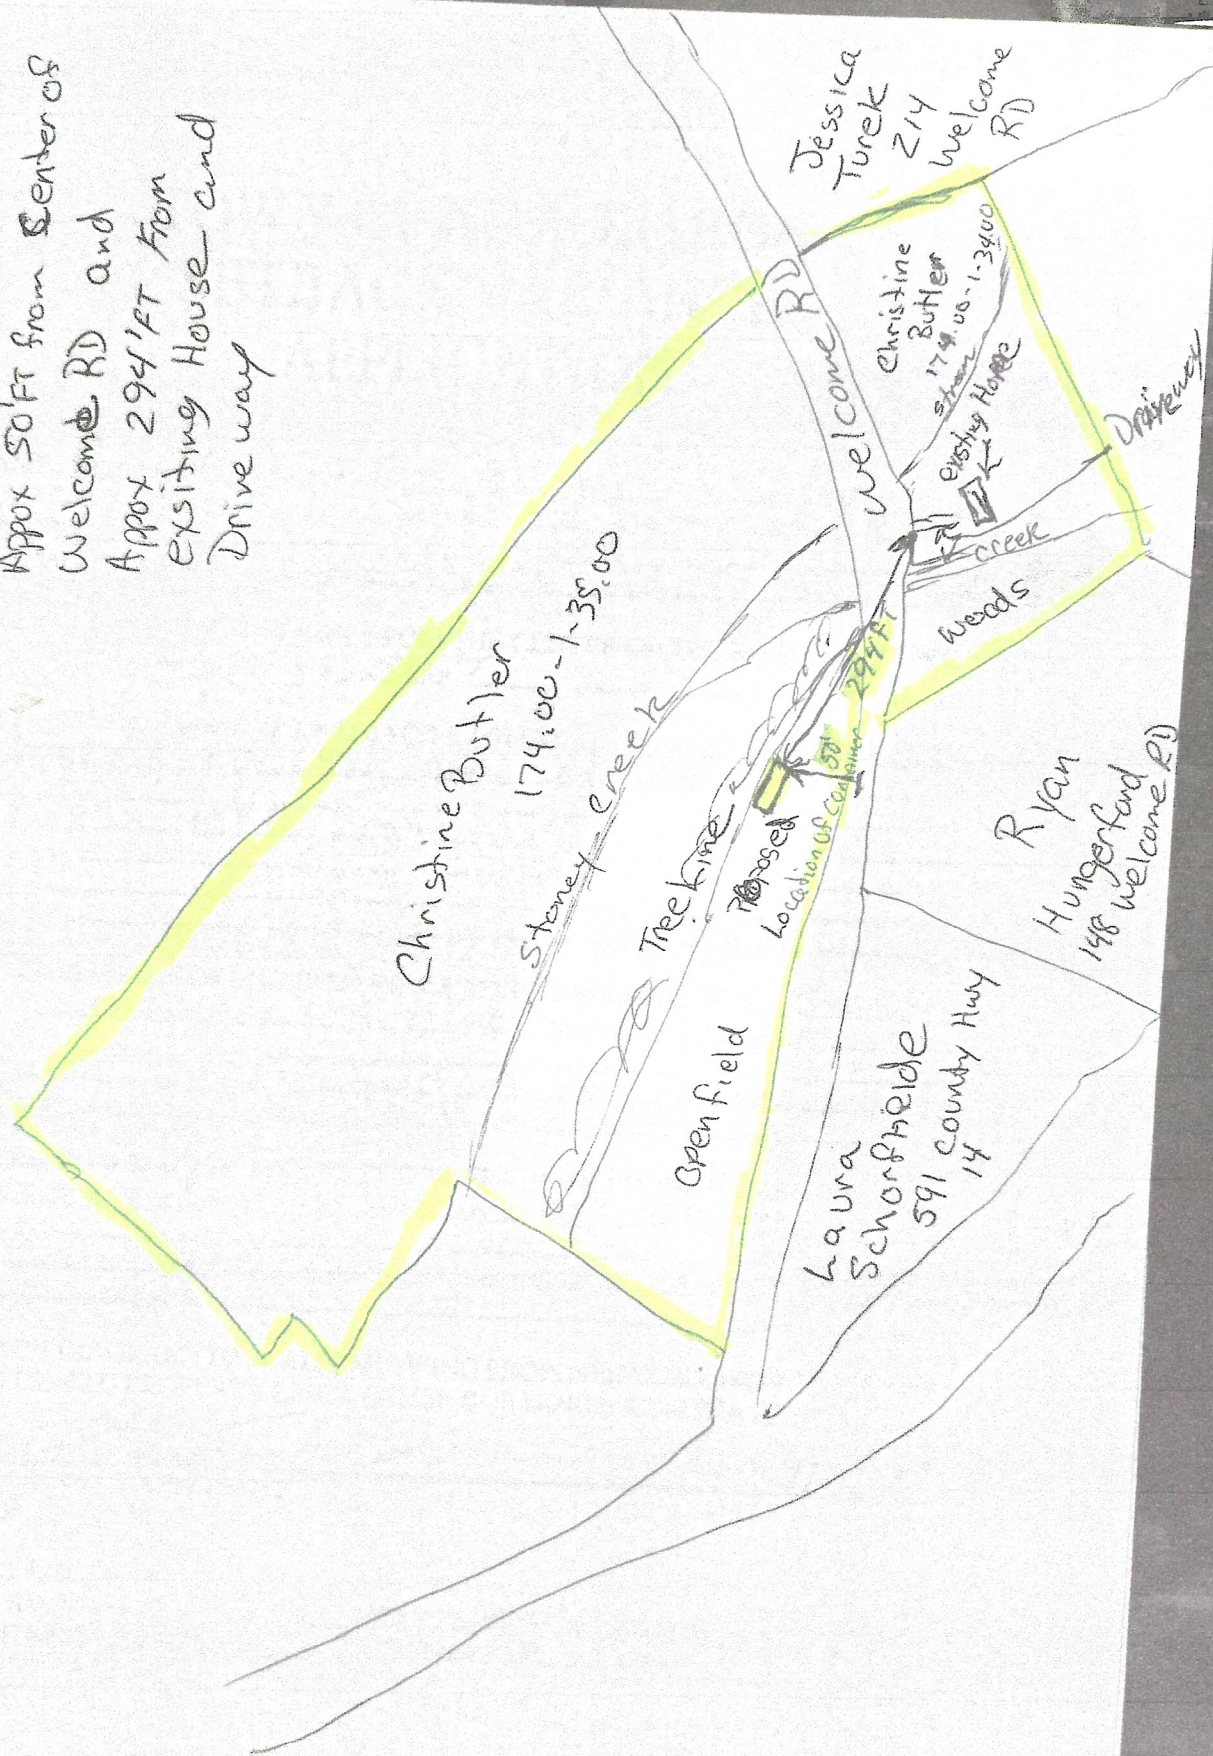 Appox 50'FT from Center of
Welcome RD and
Appox 294'FT From
exsiting House and
Drive way
Jessica
Turek
214
Welcome
RD
Welcome RD
Christine
Butler
174.00-1-34.00
stream
existing Home
Driveway
creek
woods
Christine Butler
174.00-1-35.00
Stoney creek
Treeline
294FT
50'
Proposed
Location of Container
Open field
Ryan
Hungerford
148 Welcome RD
Laura
Schorfheide
591 County Hwy
14